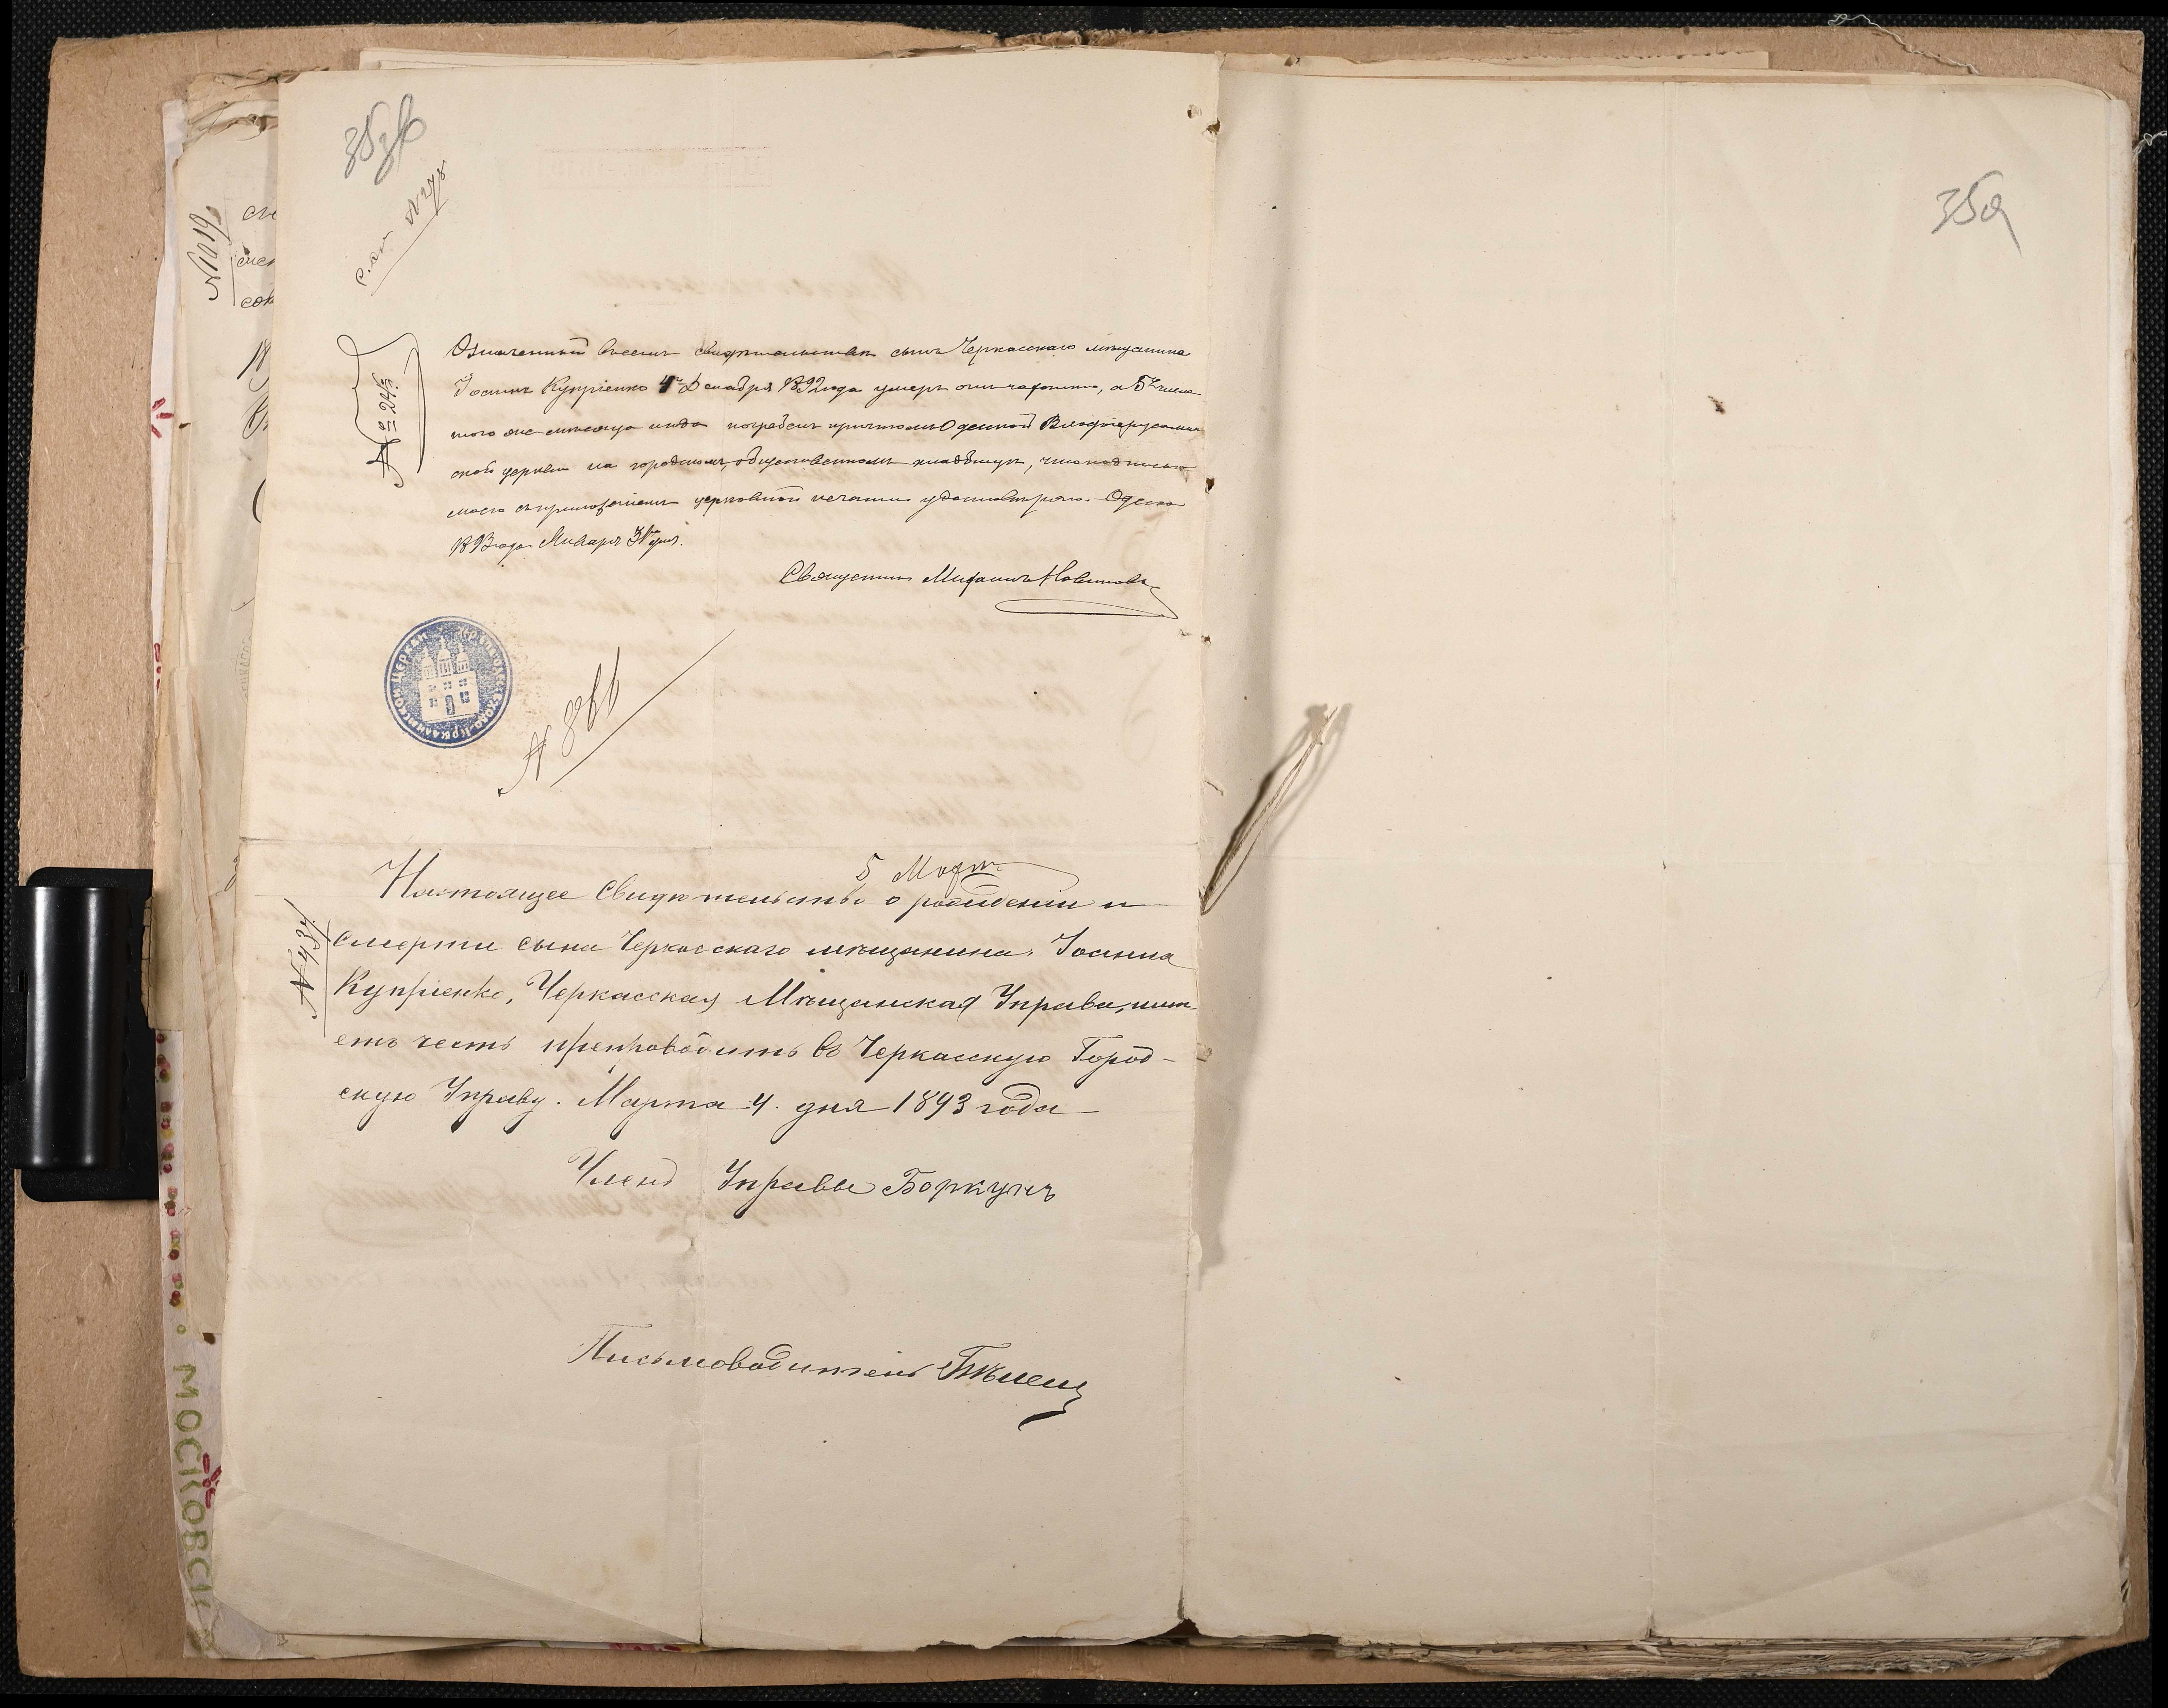 358
359
с. ст. № 278
№ 1019
№ 245.
Означенный въ семъ свидѣтельствѣ сынъ Черкасскаго мѣщанина
Іоаннъ Купріенко 4го Декабря 1892 года умеръ отъ чахотки, а 5го числа
того же мѣсяца и года погребенъ причтомъ Одесской
ской церкви на городскомъ общественномъ кладбищѣ, что подписью
моею съ приложеніемъ церковной печати удостовѣряю. Одесса
1893 года Января 31 дня.
Священникъ Михаилъ Новиковъ
№ 866
5 Март.
Настоящее свидѣтельство о рожденіи и
№ 437
смерти сына Черкасскаго мѣщанина Іоанна
Купріенко, Черкасская Мѣщанская Управа, имѣ-
етъ честь препроводить въ Черкасскую Город-
скую Управу. Марта 4. дня 1893 года
Членъ Управы Боркунъ
Письмоводитель
МОСКОВСК